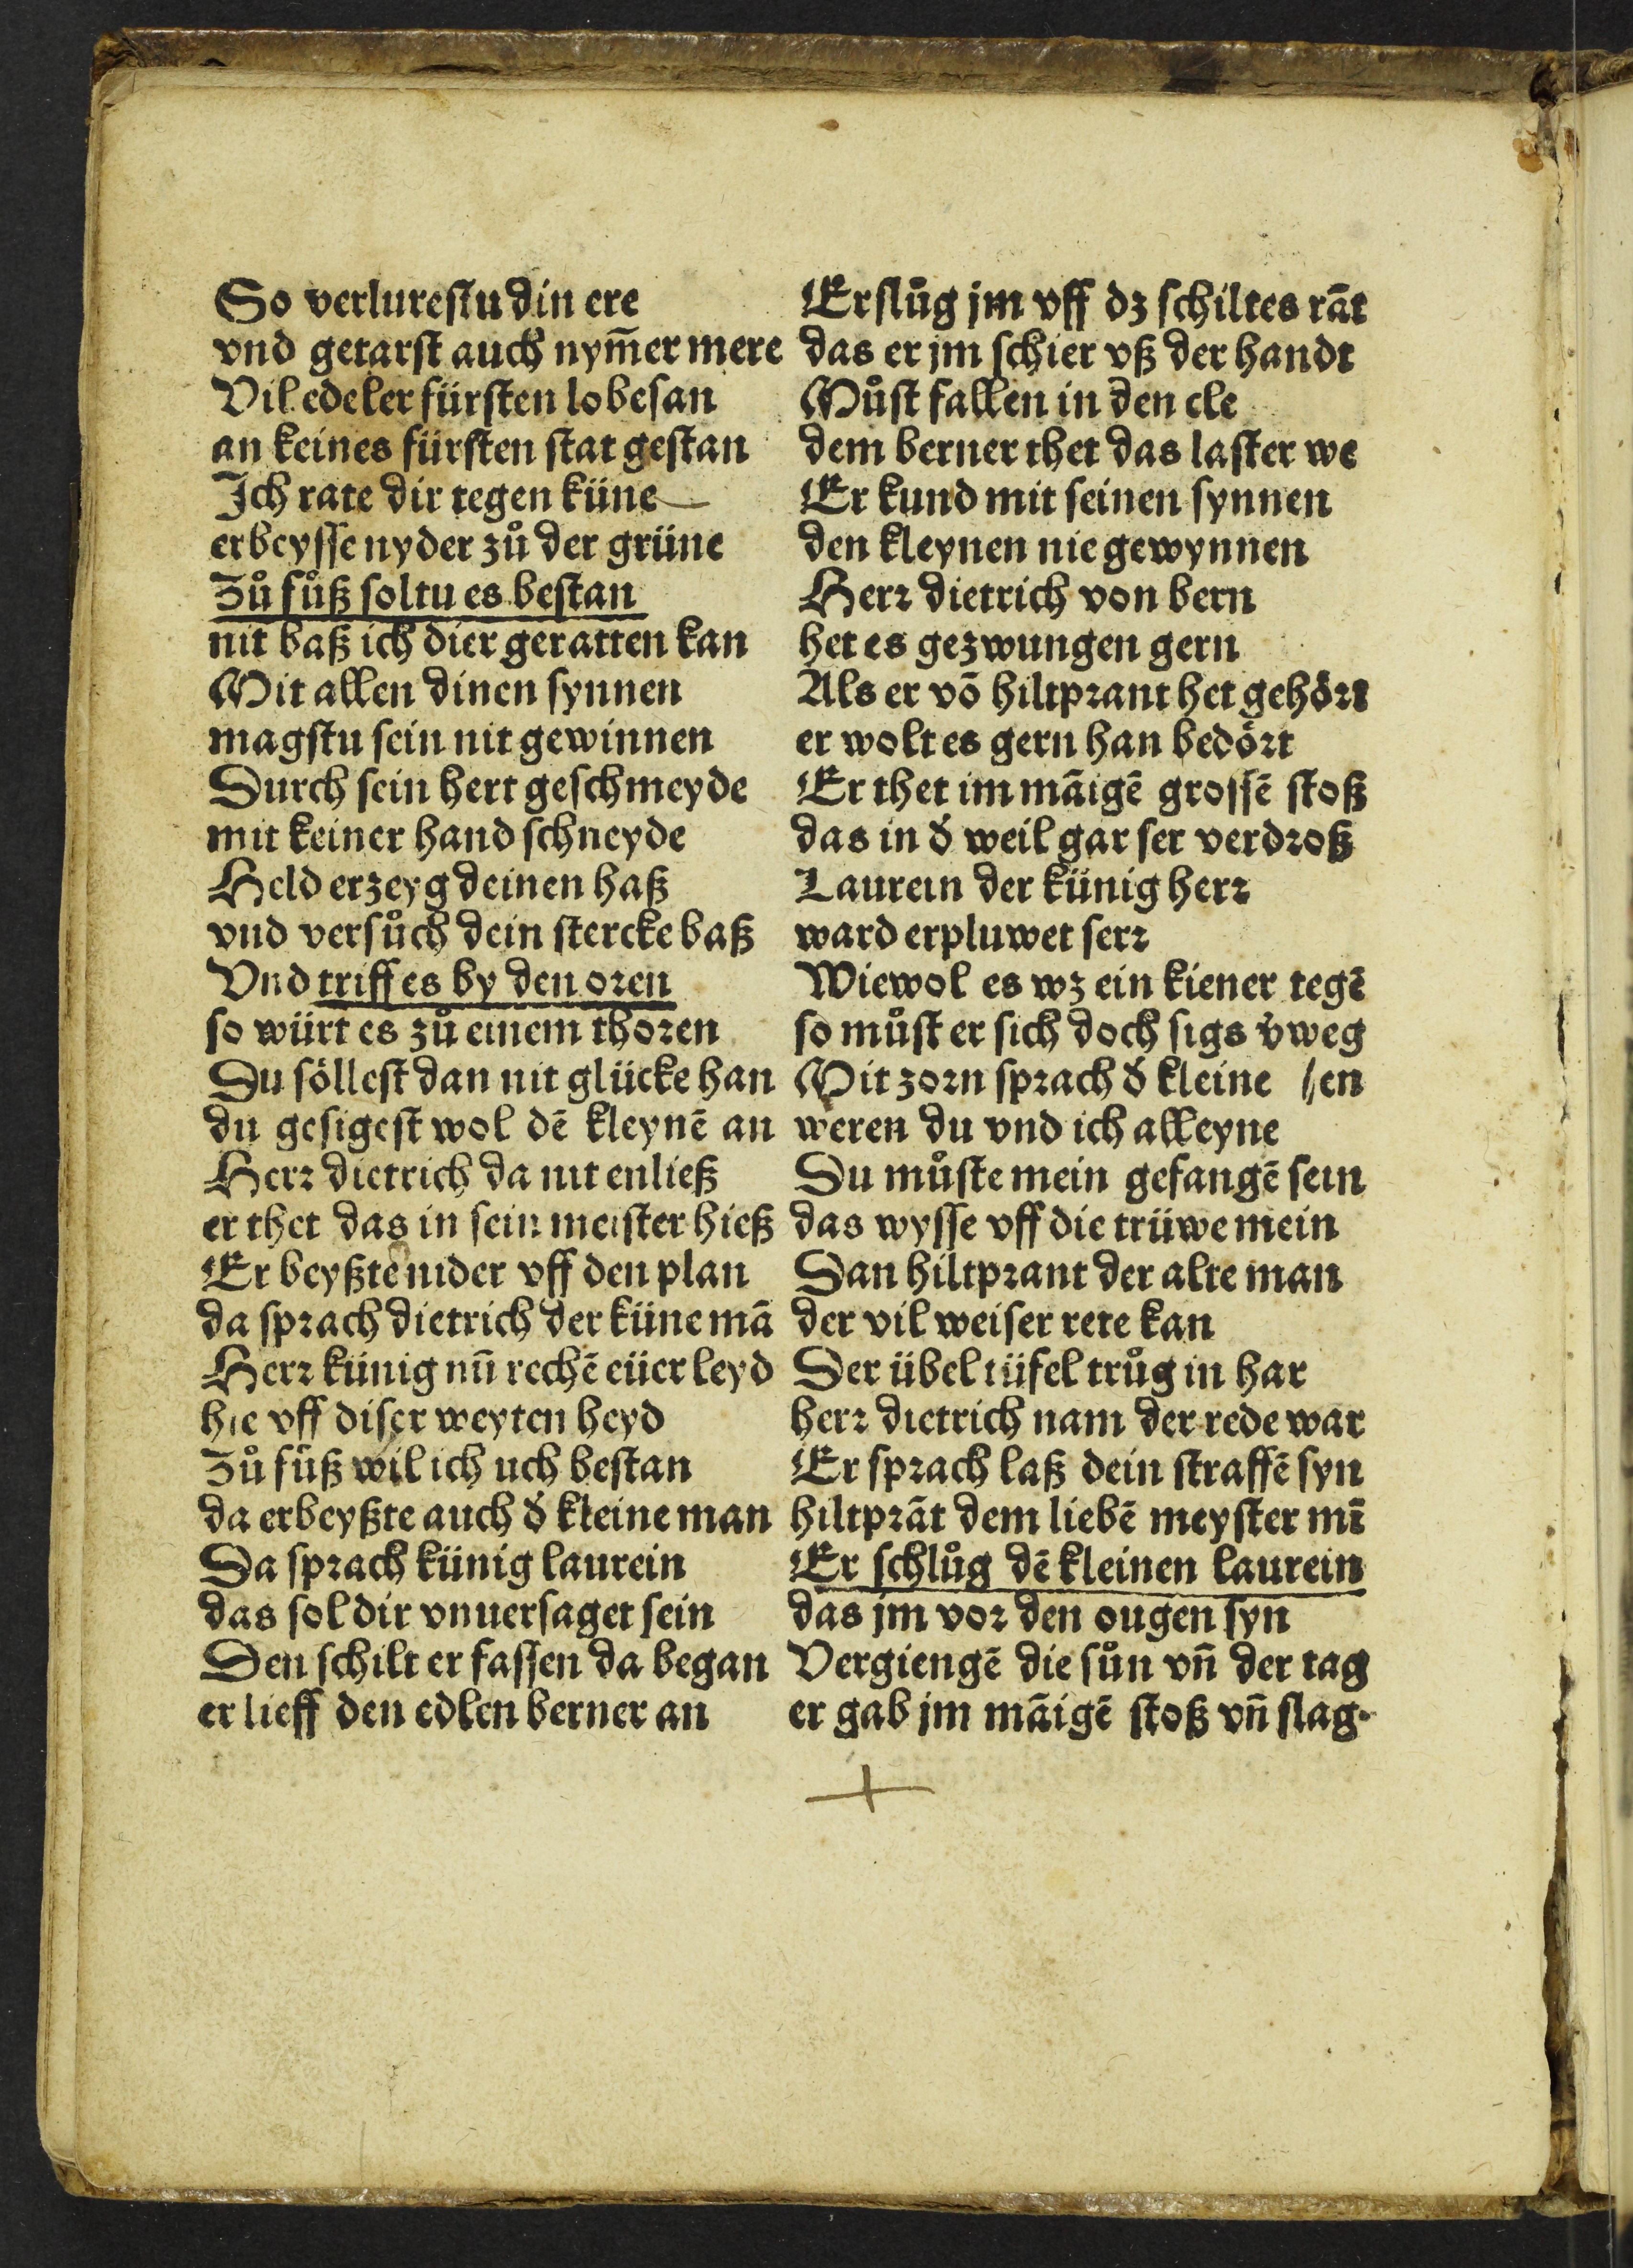 So verlurestu din ere
vnd getarst auch nym̄er mere
Vil edeler fürsten lobesan
an keines fürsten stat gestan
Ich rate dir tegen küne
erbeysse nyder zů der grüne
Zů fůß soltu es bestan
nit baß ich dier geratten kan
Mit allen dinen synnen
magstu sein nit gewinnen
Durch sein hert geschmeyde
mit keiner hand schneyde
Held erzeyg deinen haß
vnd versůch dein stercke baß
Vnd triff es by den oren
so würt es zů einem thoren
Du söllest dan nit glücke han
du gesigest wol dē kleynē an
Herr dietrich da nit enließ
er thet das in sein meister hieß
Er beyßte nider vff den plan
da sprach dietrich der küne mā
Herr künig nū rechē eüer leyd
hie vff diser weyten heyd
Zů fůß wil ich uch bestan
da erbeyßte auch d̕ kleine man
Da sprach künig laurein
das sol dir vnuersaget sein
Den schilt er fassen da began
er lieff den edlen berner an
Er slůg jm vff dz schiltes rāt
das er jm schier vß der handt
Můst fallen in den cle
dem berner thet das laster we
Er kund mit seinen synnen
den kleynen nie gewynnen
Herr dietrich von bern
het es gezwungen gern
Als er vō hiltprant het gehört
er wolt es gern han bedört
Er thet im māigē grossē stoß
das in d̕ weil gar ser verdroß
Laurein der künig herr
ward erpluwet serr
Wiewol es wz ein kiener tegē
so můst er sich doch sigs v̕weg
Mit zorn sprach d̕ kleine (en
weren du vnd ich alleyne
Du můste mein gefangē sein
das wysse vff die trüwe mein
Dan hiltprant der alte man
der vil weiser rete kan
Der übel tüfel trůg in har
herr dietrich nam der rede war
Er sprach laß dein straffē syn
hiltprāt dem liebē meyster mī
Er schlůg dē kleinen laurein
das jm vor den ougen syn
Vergiengē die sůn vn̄ der tag
er gab jm māigē stoß vn̄ slag.